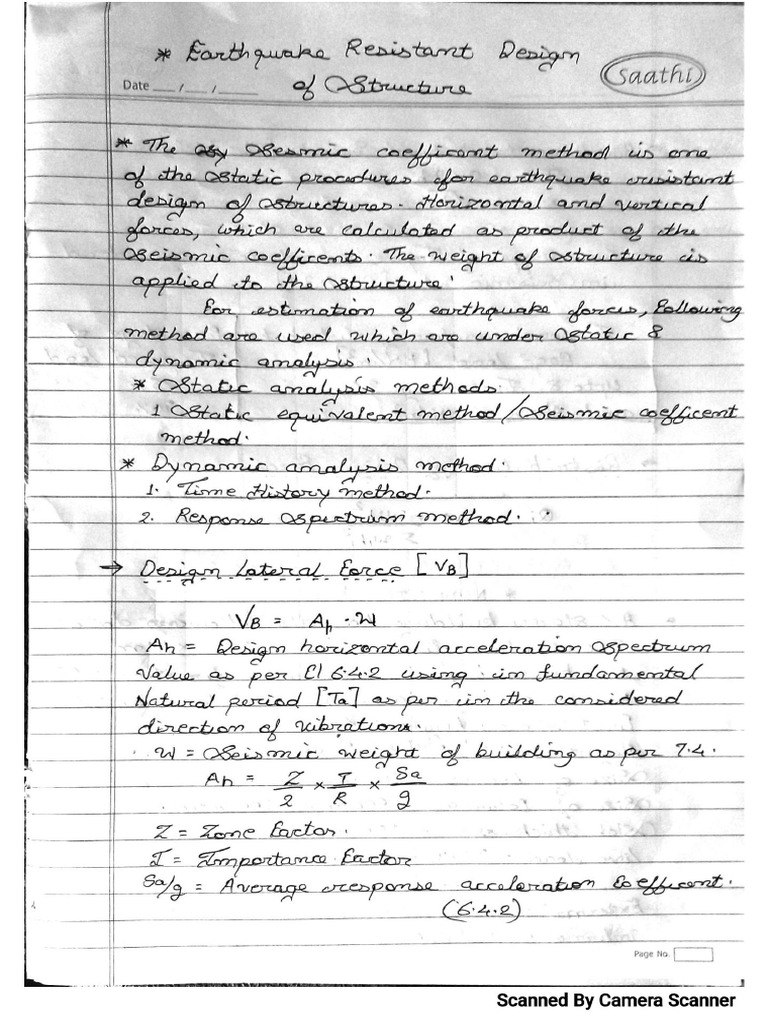 * Earthquake Resistant Design
saathi
Date __ / __ / ____ of Structure
* The Sesmic coefficent method is one
of the Static procedures for earthquake resistant
design of structures. Horizontal and vertical
forces, which are calculated as product of the
seismic coefficents. The weight of structure is
applied to the structure.
For estimation of earthquake forces, Following
method are used which are under Static &
dynamic analysis.
* Static analysis methods
1 Static equivalent method/Seismic coefficent
method.
* Dynamic analysis method.
1. Time History method.
2. Response Spectrum method.
→ Design Lateral Force [VB]
VB = Ah . W
Ah = Design horizontal acceleration Spectrum
Value as per Cl 6.4.2 using in fundamental
Natural period [Ta] as per in the considered
direction of vibrations.
W = Seismic weight of building as per 7.4.
Ah = Z/2 × I/R × Sa/g
Z = Zone Factor.
I = Importance Factor
Sa/g = Average response acceleration Coefficent.
(6.4.2)
Page No.
Scanned By Camera Scanner